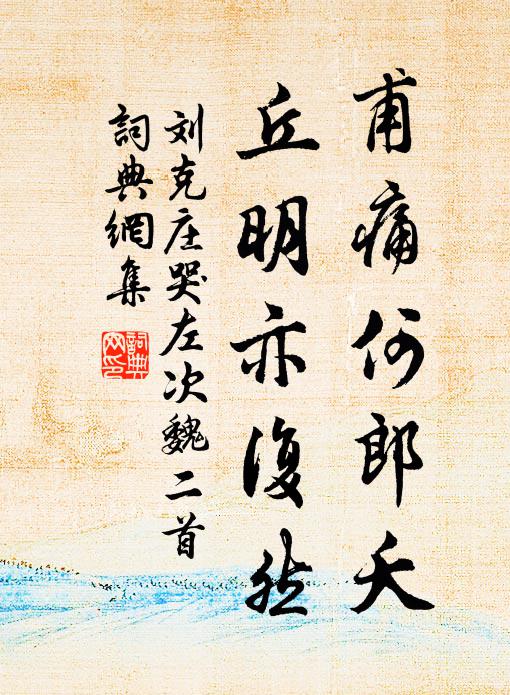 甫痛何郎夭
丘明亦复然
刘克庄哭左次魏二首
词典網集
詞典